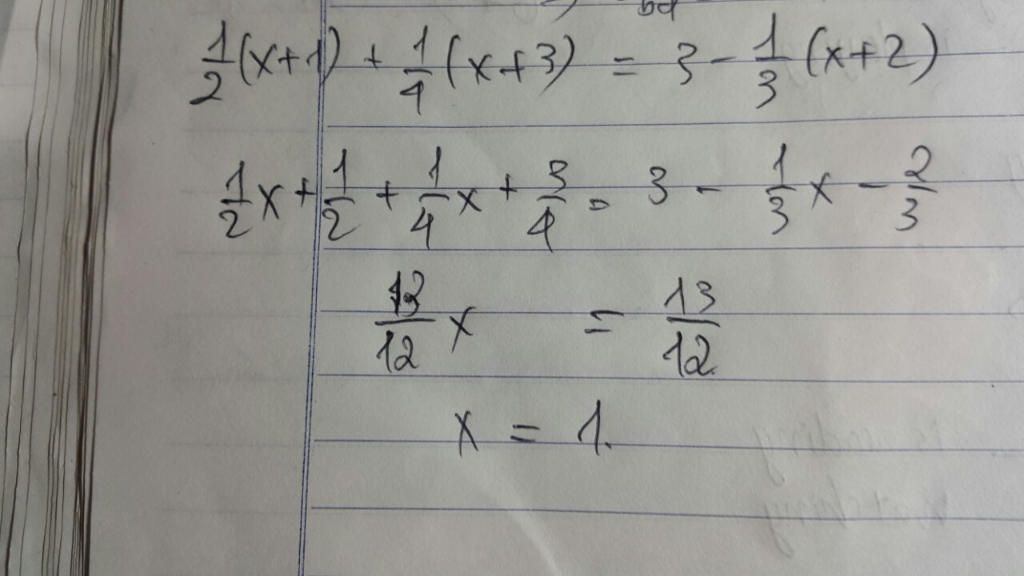 bd
1/2(x+1) + 1/4(x+3) = 3 - 1/3(x+2)
1/2x + 1/2 + 1/4x + 3/4 = 3 - 1/3x - 2/3
13/12x = 13/12
x = 1.